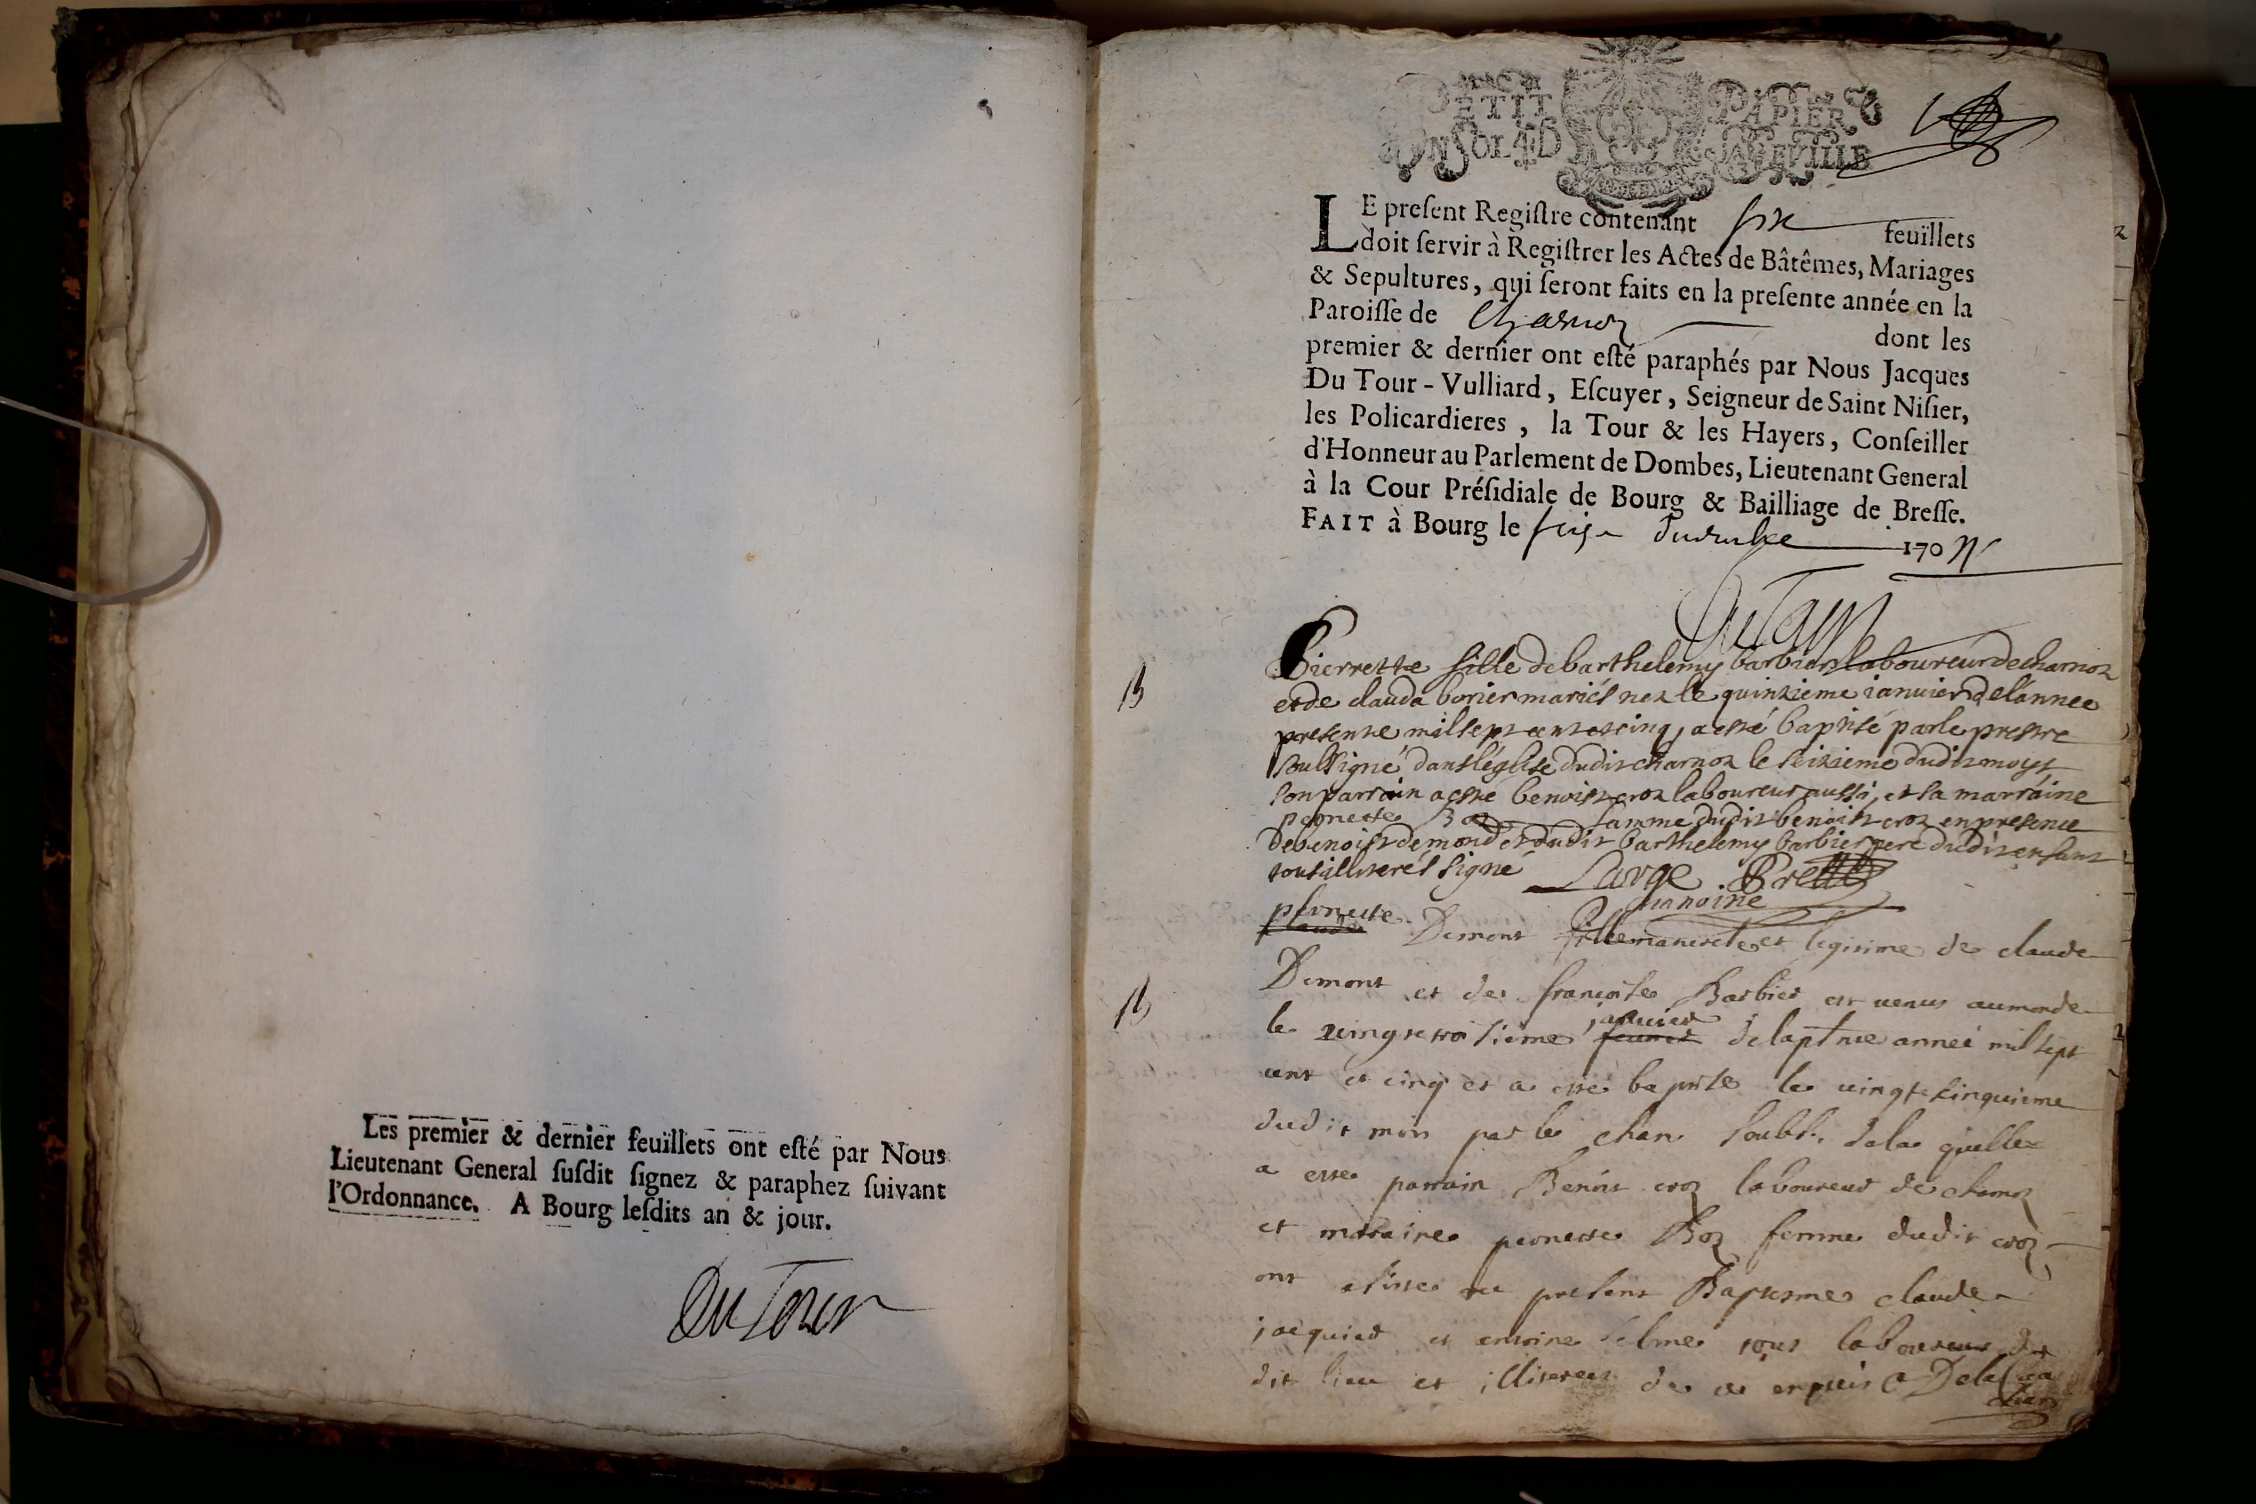 Les premier & dernier feuïllets ont esté par Nous
Lieutenant General susdit signez & paraphez suivant
l'Ordonnance. A Bourg lesdits an & jour.
Du Tour
PETIT PAPIER
UN SOL 4 D LA FEUILLE
LE present Registre contenant six feuïllets
doit servir à Registrer les Actes de Bâtêmes, Mariages
& Sepultures, qui seront faits en la presente année en la
Paroisse de Charnoz dont les
premier & dernier ont esté paraphés par Nous Jacques
Du Tour - Vulliard, Escuyer, Seigneur de Saint Nisier,
les Policardieres, la Tour & les Hayers, Conseiller
d'Honneur au Parlement de Dombes, Lieutenant General
à la Cour Présidiale de Bourg & Bailliage de Bresse.
FAIT à Bourg le 170
Du Tour
B
Pierrette fille de barthelemy barbier laboureur de charnoz
et de clauda borier mariés nez le quinzieme ianuier de l'annee
presente mil sept cent et cinq, a esté baptisé par le prestre
soussigné dans l'église dudit charnoz le seizieme dudit moys
son parrain a esté benoist croz laboureur aussi, et sa marraine
pernette Boz famme dudit benoist croz en presence
de benoist demond et dudit barthelemy barbier pere dudit enfant
tous illiterés signé Large Bret
chanoine
B
pernette
Demont fille naturele et legitime de claude
Demont et de françoise Barbier est venus au monde
le vingt troisieme januier de la pnte année mil sept
cent et cinq et a esté baptise le vingt cinquieme
dudit mois par le chan soubs. de la quelle
a este parrain Benoit croz laboureur de charnoz
et maraine pernette Boz femme dudit croz
ont assisté au present Baptesme claude
jacquier et antoine selme tous laboureurs du
dit lieu et illiterez de ce enquis
chan